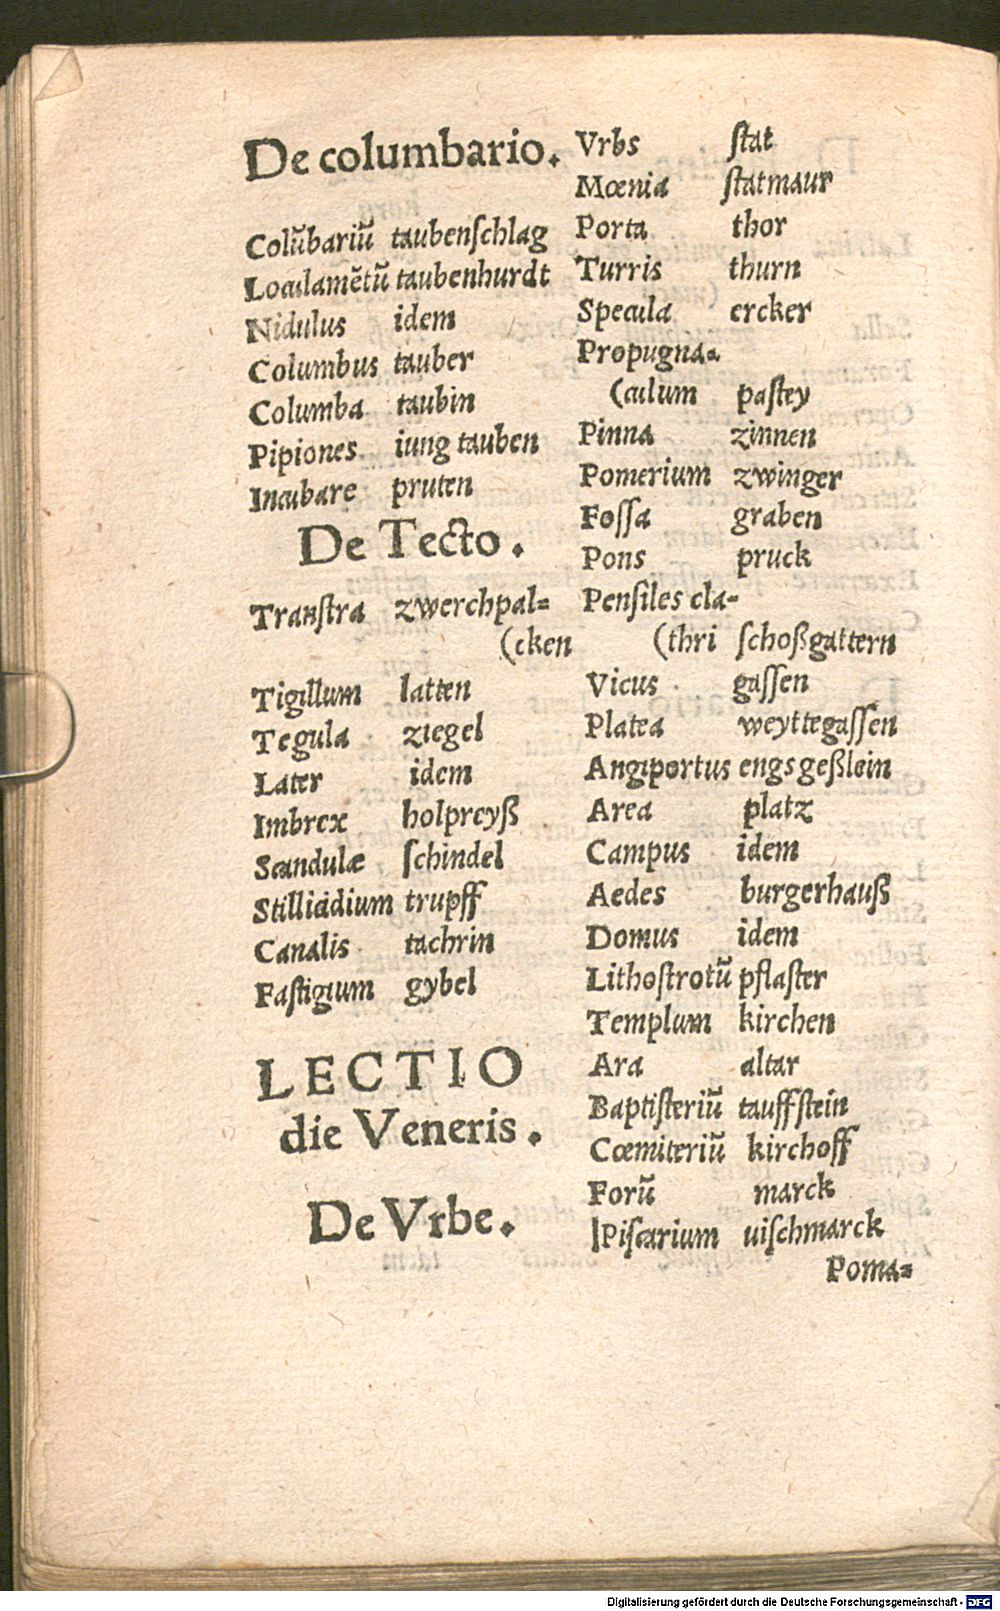 De columbario.
Colũbariũ taubenſchlag
Loculamẽtũ taubenhurdt
Nidulus idem
Columbus tauber
Columba taubin
Pipiones iung tauben
Incubare pruten
De Tecto.
Tranſtra zwerchpal=
(cken
Tigillum latten
Tegula ziegel
Later idem
Imbrex holpreyß
Scandulæ ſchindel
Stillicidium trupff
Canalis tachrin
Faſtigium gybel
LECTIO
die Veneris.
De Vrbe.
Vrbs ſtat
Mœnia ſtatmaur
Porta thor
Turris thurn
Specula ercker
Propugna=
(culum paſtey
Pinna zinnen
Pomerium zwinger
Foſſa graben
Pons pruck
Penſiles cla-
(thri ſchoßgattern
Vicus gaſſen
Platea weyttegaſſen
Angiportus engsgeßlein
Area platz
Campus idem
Aedes burgerhauß
Domus idem
Lithoſtrotũ pflaſter
Templum kirchen
Ara altar
Baptiſteriũ tauffſtein
Cœmiteriũ kirchoff
Forũ marck
Piſcarium uiſchmarck
Poma=
Digitalisierung gefördert durch die Deutsche Forschungsgemeinschaft - DFG